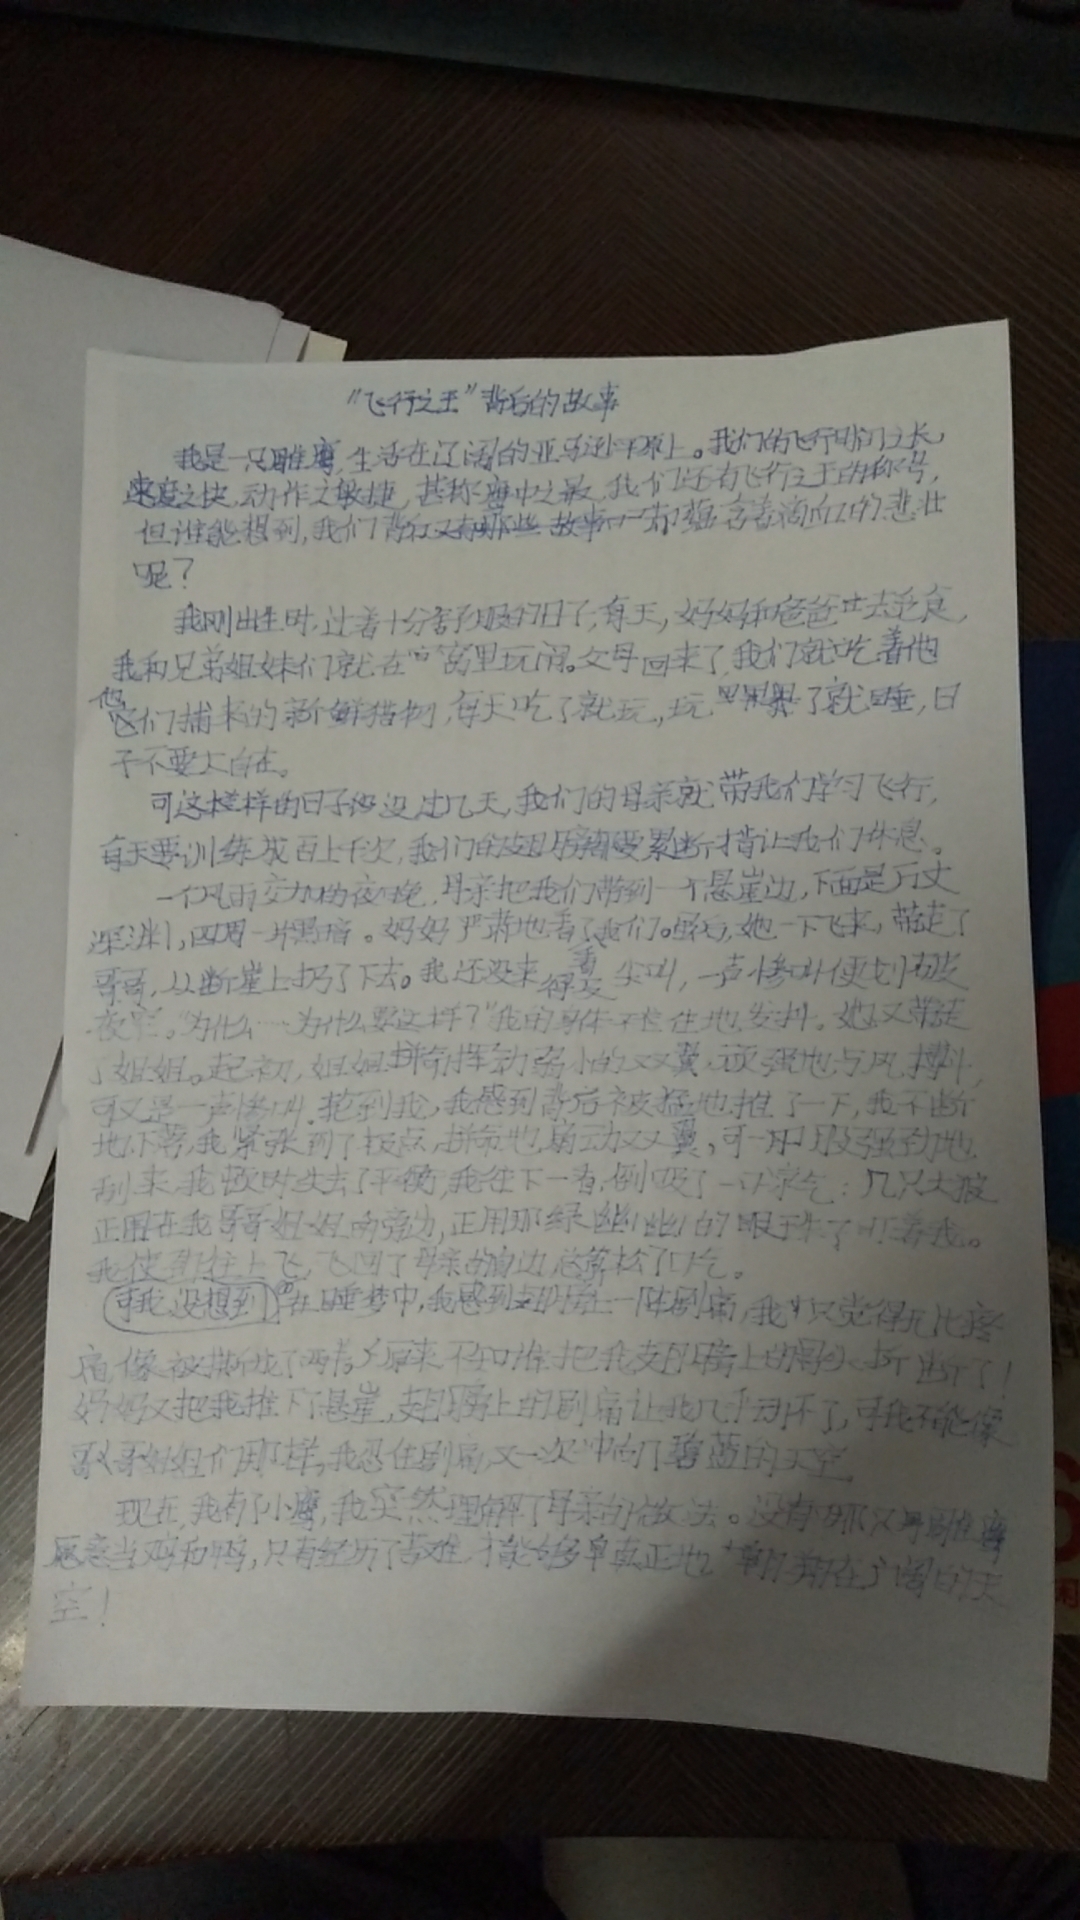 “飞行之王”背后的故事
我是一只雕鹰,生活在辽阔的亚马逊平原上。我们的飞行时间之长,
速度之快,动作之敏捷,甚称鹰中之最,我们还有飞行之王的称号,
但谁能想到,我们背后又有那些故事 含着滴血的悲壮
呢?
我刚出生时,过着十分舒服的日子,每天,妈妈和爸爸出去觅食,
我和兄弟姐妹们就在 窝里玩闹。父母回来了,我们就吃着他
他们捕来的新鲜猎物,每天吃了就玩,玩累了就睡,日
子不要太自在。
可这样的日子没过几天,我们的母亲就带我们学习飞行,
每天要训练成百上千次,我们的翅膀都要累断才让我们休息。
一个风雨交加的夜晚,母亲把我们带到一个悬崖边,下面是万丈
深渊,四周一片黑暗。妈妈严肃地看了看我们。然后,她一下飞来,带走了
哥哥,从断崖上扔了下去。我还没来得及尖叫,一声惨叫便划破
夜空。“为什么……为什么要这样?”我的身体不住地发抖。她又带走
了姐姐。起初,姐姐拼命挥动弱小的双翼,顽强地与风搏斗,
可又是一声惨叫。轮到我,我感到背后被猛地推了一下,我不断
地下落,我紧张到了极点,拼命地扇动双翼,可一阵风强劲地
刮来,我顿时失去了平衡,我往下一看,倒吸了一口凉气:几只大狼
正围在我哥哥姐姐的旁边,正用那绿幽幽的眼 盯着我。
我使劲往上飞,飞回了母亲的身边,总算松了口气。
可我没想到在睡梦中,我感到翅膀上一阵剧痛,我只觉得无比疼
痛,像被撕成了两 原来不知谁把我翅膀上的 折断了!
妈妈又把我推下悬崖,翅膀上的剧痛让我几乎动不了,可我不能像
哥哥姐姐们那样,我忍住剧痛,又一次冲向了碧蓝的天空
现在,我有了小鹰,我突然理解了母亲的做法。没有哪只雕鹰
愿意当鸡和鸭,只有经历了苦难,才能够真正地翱翔在辽阔的天
空!